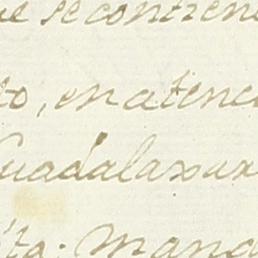 ue se contiene
to, en atenc
Guadalaxar
ta; Mand